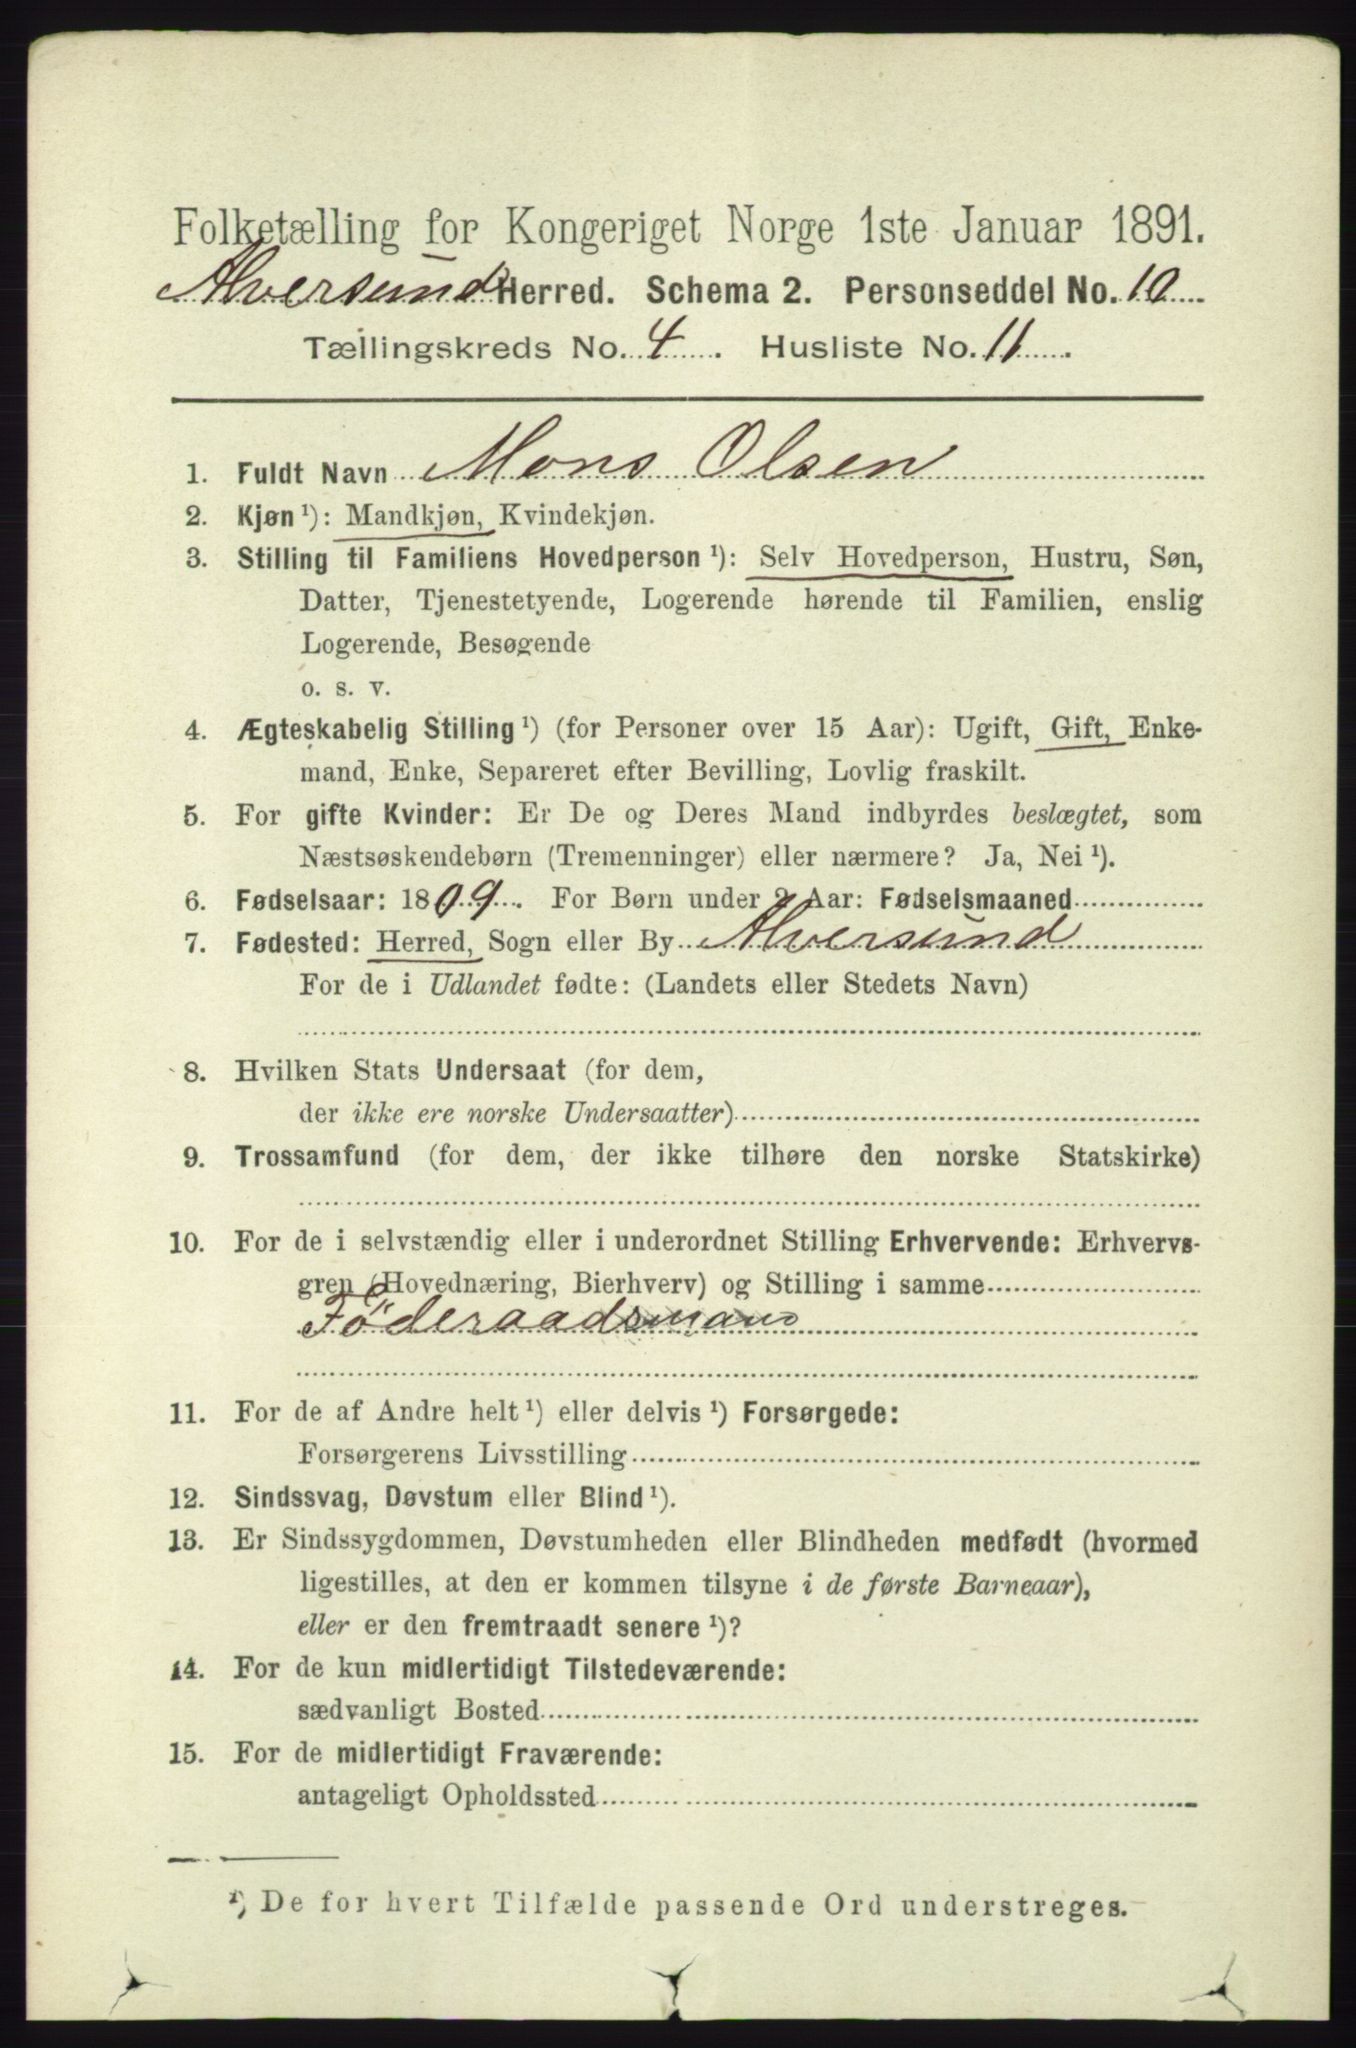 Folketælling for Kongeriget Norge 1ste Januar 1891.
Alversund Herred. Schema 2. Personseddel No. 10
Tællingskreds No. 4. Husliste No. 11.
1. Fuldt Navn Mons Olsen
2. Kjøn ¹): Mandkjøn, Kvindekjøn.
3. Stilling til Familiens Hovedperson ¹): Selv Hovedperson, Hustru, Søn,
Datter, Tjenestetyende, Logerende hørende til Familien, enslig
Logerende, Besøgende
o. s. v.
4. Ægteskabelig Stilling ¹) (for Personer over 15 Aar): Ugift, Gift, Enke-
mand, Enke, Separeret efter Bevilling, Lovlig fraskilt.
5. For gifte Kvinder: Er De og Deres Mand indbyrdes beslægtet, som
Næstsøskendebørn (Tremenninger) eller nærmere? Ja, Nei ¹).
6. Fødselsaar: 1809. For Børn under 2 Aar: Fødselsmaaned
7. Fødested: Herred, Sogn eller By Alversund
For de i Udlandet fødte: (Landets eller Stedets Navn)
8. Hvilken Stats Undersaat (for dem,
der ikke ere norske Undersaatter)
9. Trossamfund (for dem, der ikke tilhøre den norske Statskirke)
10. For de i selvstændig eller i underordnet Stilling Erhvervende: Erhvervs-
gren (Hovednæring, Bierhverv) og Stilling i samme
Föderaadsmand
11. For de af Andre helt ¹) eller delvis ¹) Forsørgede:
Forsørgerens Livsstilling
12. Sindssvag, Døvstum eller Blind ¹).
13. Er Sindssygdommen, Døvstumheden eller Blindheden medfødt (hvormed
ligestilles, at den er kommen tilsyne i de første Barneaar),
eller er den fremtraadt senere ¹)?
14. For de kun midlertidigt Tilstedeværende:
sædvanligt Bosted
15. For de midlertidigt Fraværende:
antageligt Opholdssted
¹) De for hvert Tilfælde passende Ord understreges.